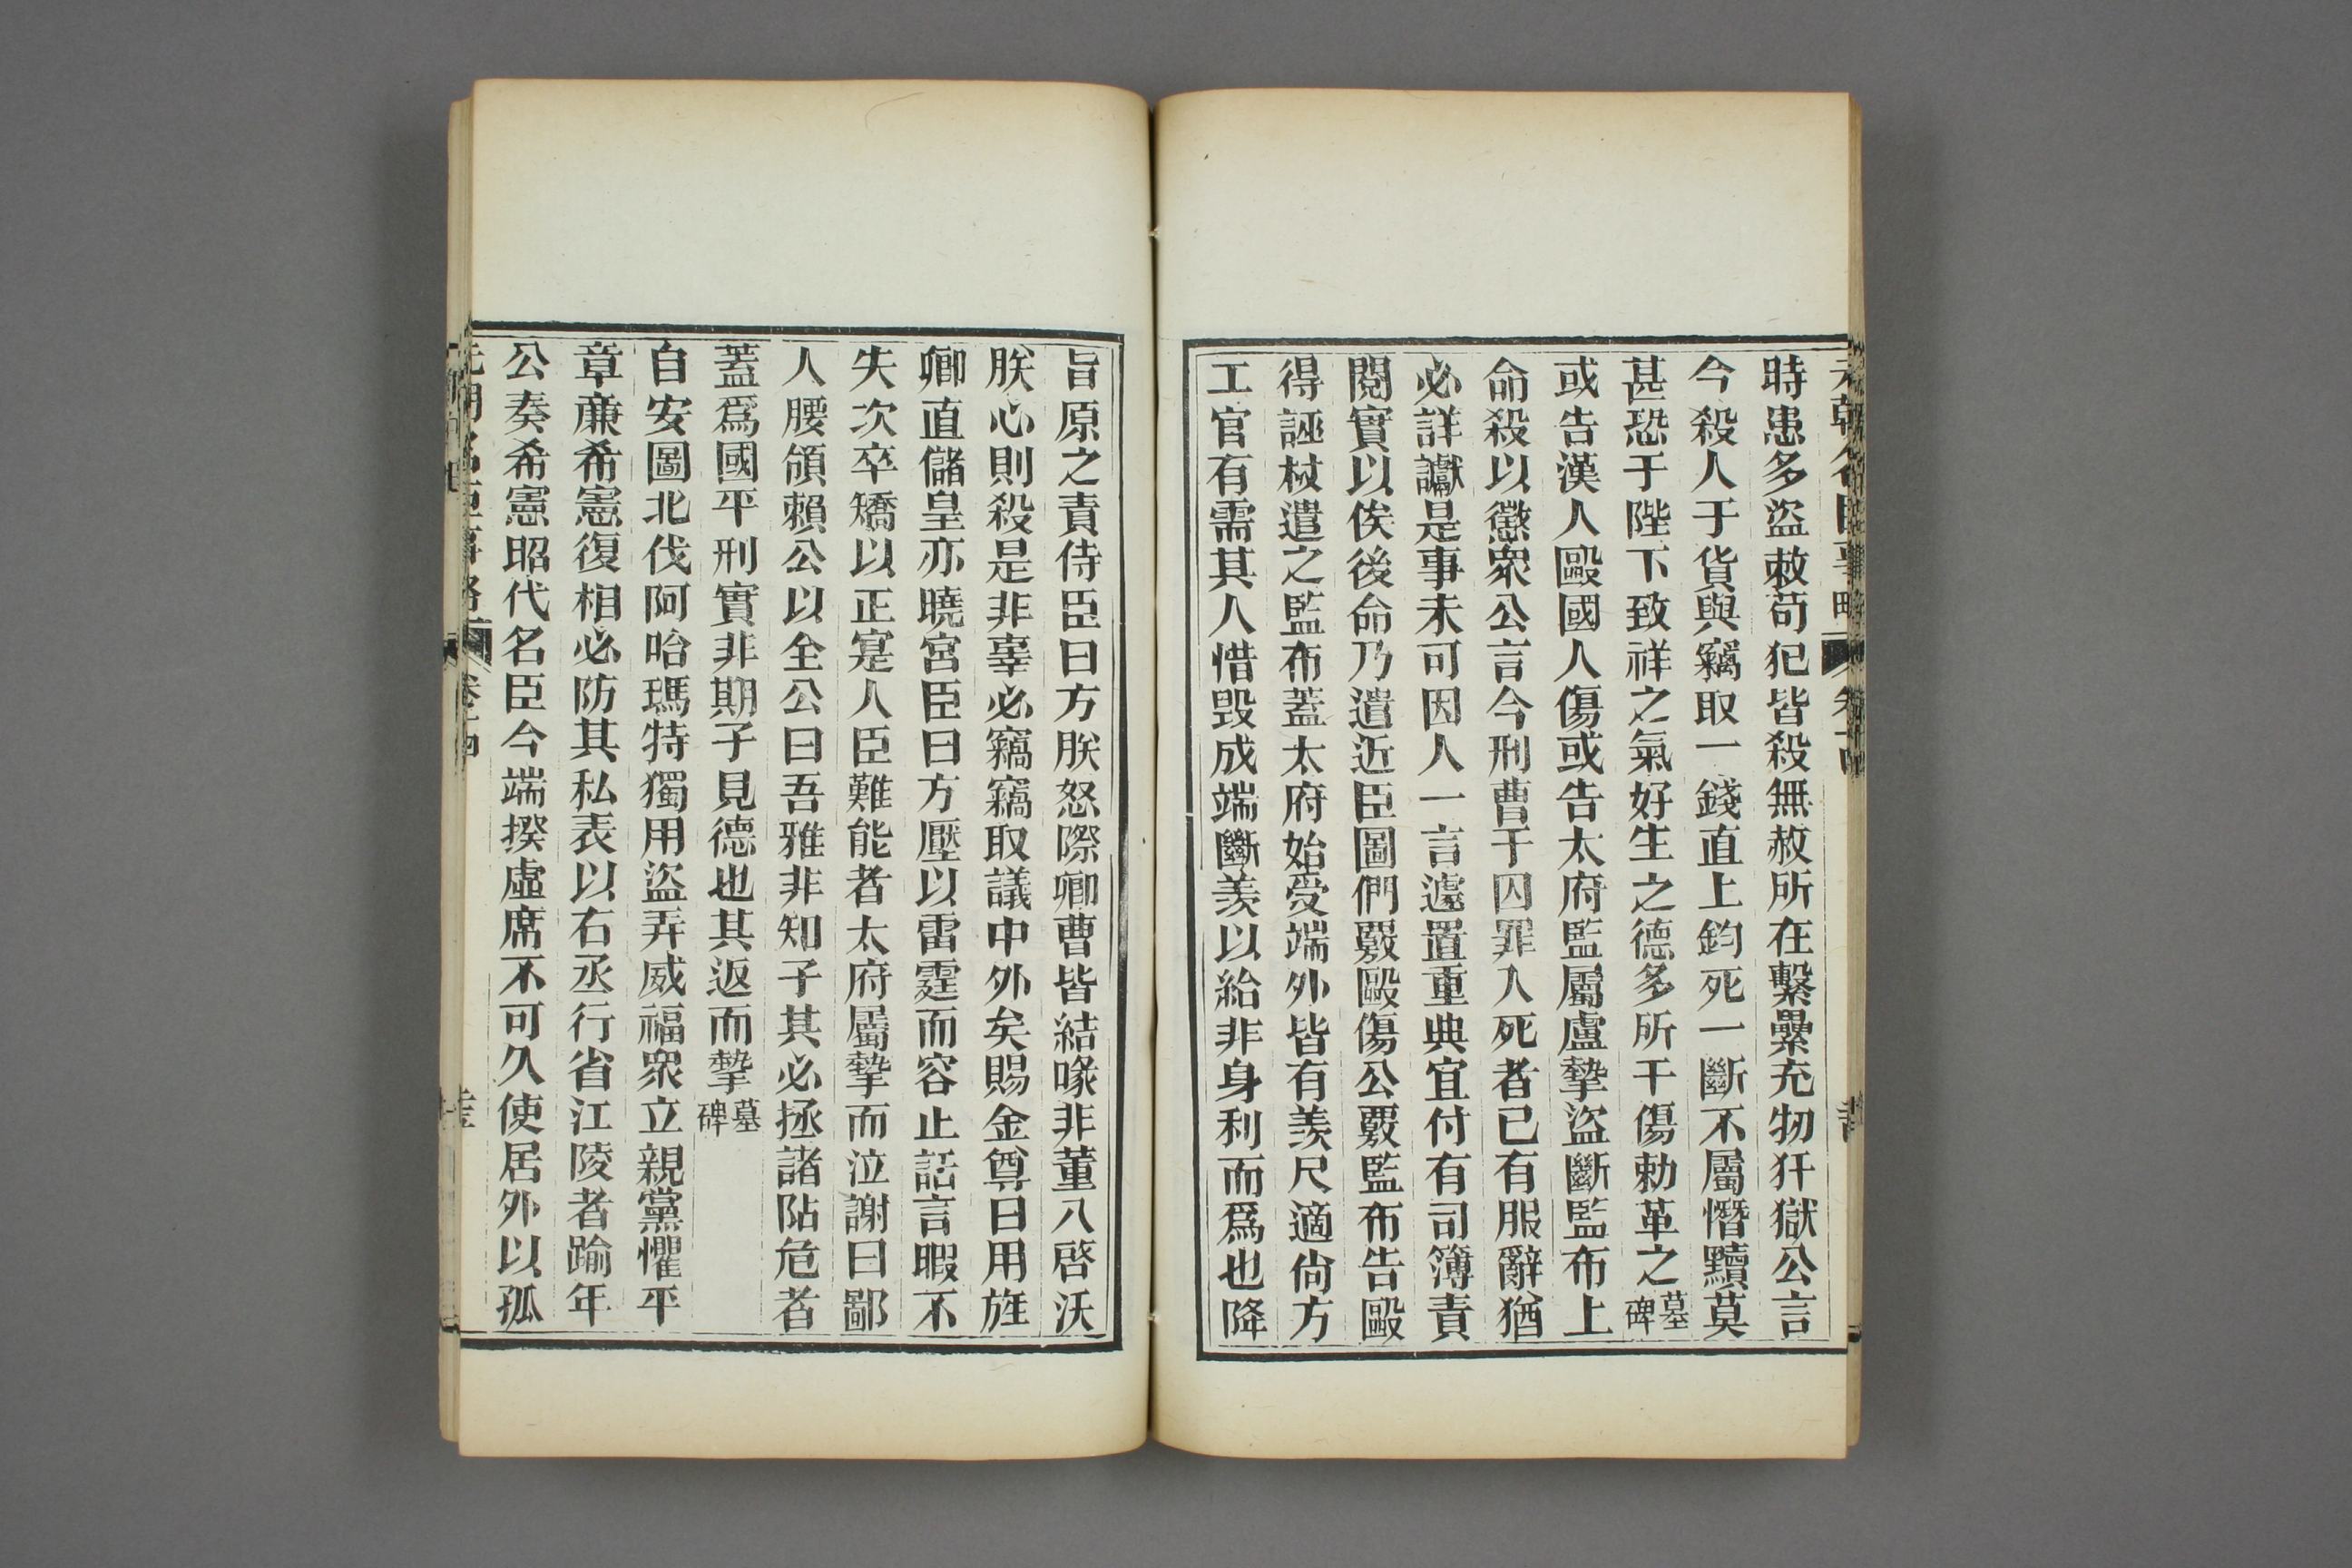 時患多盜敕苟犯皆殺無赦所在繫纍充牣犴獄公言
今殺人于貨與竊取一錢直上鈞死一斷不屬憯黷莫
甚恐于陛下致祥之氣好生之德多所干傷勅革之墓碑
或告漢人毆國人傷或告太府監屬盧摯盜斷監布上
命殺以懲眾公言今刑曹于囚罪入死者已有服辭猶
必詳讞是事未可因人一言遽置重典宜付有司簿責
閱實以俟後命乃遣近臣圖們覈毆傷公覈監布告毆
得誣杖遣之監布蓋太府始受端外皆有羨尺適尙方
工官有需其人惜毀成端斷羨以給非身利而爲也降
旨原之責侍臣曰方朕怒際卿曹皆結喙非董八啓沃
朕心則殺是非辜必竊竊取議中外矣賜金尊曰用旌
卿直儲皇亦曉宮臣曰方壓以雷霆而容止話言暇不
失次卒矯以正寔人臣難能者太府屬摯而泣謝曰鄙
人腰頷賴公以全公曰吾雅非知子其必拯諸阽危者
蓋爲國平刑實非期子見德也其返而摯墓碑
自安圖北伐阿哈瑪特獨用盜弄威福眾立親黨懼平
章廉希憲復相必防其私表以右丞行省江陵者踰年
公奏希憲昭代名臣今端揆虛席不可久使居外以孤